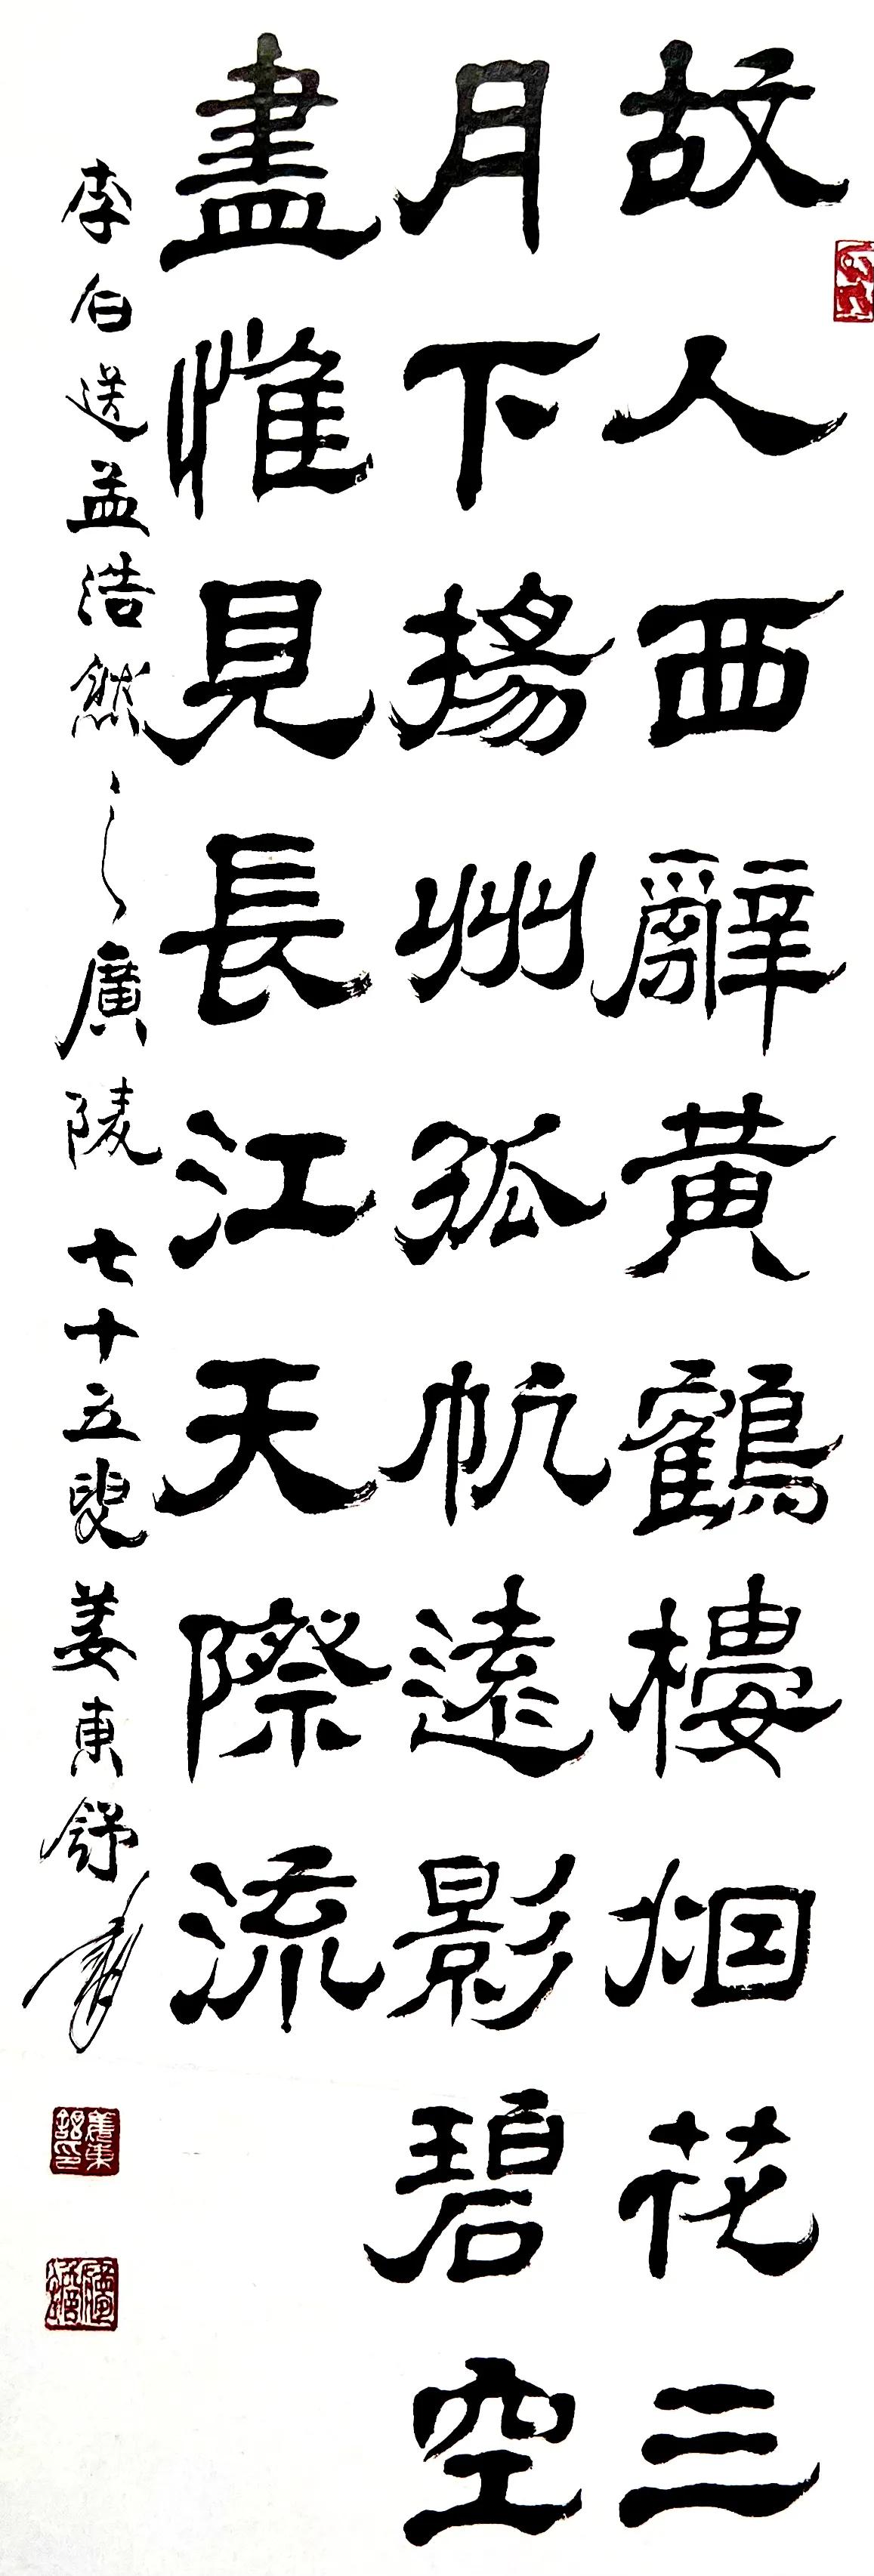 故人西辭黄鶴樓烟花三
月下揚州孤帆遠影碧空
盡惟見長江天際流
李白送孟浩然之廣陵 七十五叟姜東舒
姜東舒印